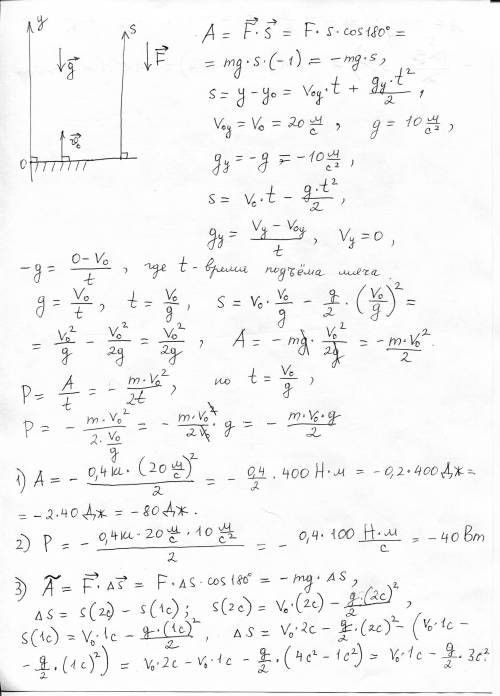 y
s
g⃗
F⃗
v⃗₀
0
A = F⃗ · s⃗ = F · s · cos 180° =
= mg · s · (-1) = -mg · s,
s = y - y₀ = v₀y · t + gy · t²/2,
v₀y = v₀ = 20 м/с, g = 10 м/с²,
gy = -g = -10 м/с²,
s = v₀ · t - g · t²/2,
gy = (vy - v₀y)/t, vy = 0,
-g = (0 - v₀)/t, где t - время подъёма мяча.
g = v₀/t, t = v₀/g, s = v₀ · v₀/g - g/2 · (v₀/g)² =
= v₀²/g - v₀²/2g = v₀²/2g, A = -mg · v₀²/2g = -m·v₀²/2.
P = A/t = -m·v₀²/2t, но t = v₀/g,
P = -m·v₀²/(2·v₀/g) = -m·v₀²/2v₀ · g = -m·v₀·g/2
1) A = -0,4кг · (20 м/с)²/2 = -0,4/2 · 400 Н·м = -0,2·400 Дж =
= -2·40 Дж = -80 Дж.
2) P = -0,4кг · 20 м/с · 10 м/с²/2 = -0,4·100 Н·м/с = -40 Вт
3) Ã = F⃗ · Δs⃗ = F · Δs · cos 180° = -mg · Δs,
Δs = s(2c) - s(1c); s(2c) = v₀·(2c) - g·(2c)²/2,
s(1c) = v₀·1c - g·(1c)²/2, Δs = v₀·2c - g/2·(2c)² - (v₀·1c -
- g/2·(1c)²) = v₀·2c - v₀·1c - g/2·(4c² - 1c²) = v₀·1c - g/2·3c².